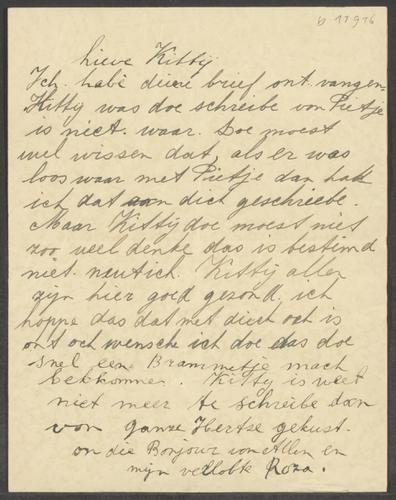 b 11916
Lieve Kitty.
Ich habe diene brief ont.vangen.
Kitty was doe schreibe von Pietje
is niet. waar. Doe moest
wel wissen dat, als er was
loos waar met Pietje dan hatt
ich dat an dich geschreebe.
Maar Kitty doe moest niet
zoo veel denke das is bestimd
niet. neutich. Kitty allen
zijn hier goed gezond. ich
hoppe das dat met dier och is
ont och wensche ich doe das doe
snel een Brammetje mach
bekkomme. Kitty is weet
niet meer te schreibe dan
von ganze Hertse gekust.
on die Bonjour von Allen en
mijn verlobte Roza.